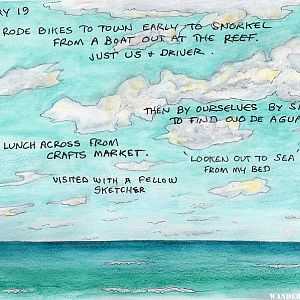 RY 19
RODE BIKES TO TOWN EARLY TO SNORKEL
FROM A BOAT OUT AT THE REEF.
JUST US & DRIVER.
THEN BY OURSELVES BY
TO FIND OJO DE AGUA
LUNCH ACROSS FROM
CRAFTS MARKET.
VISITED WITH A FELLOW
SKETCHER
'LOOKEN OUT TO SEA'
FROM MY BED
WANDER